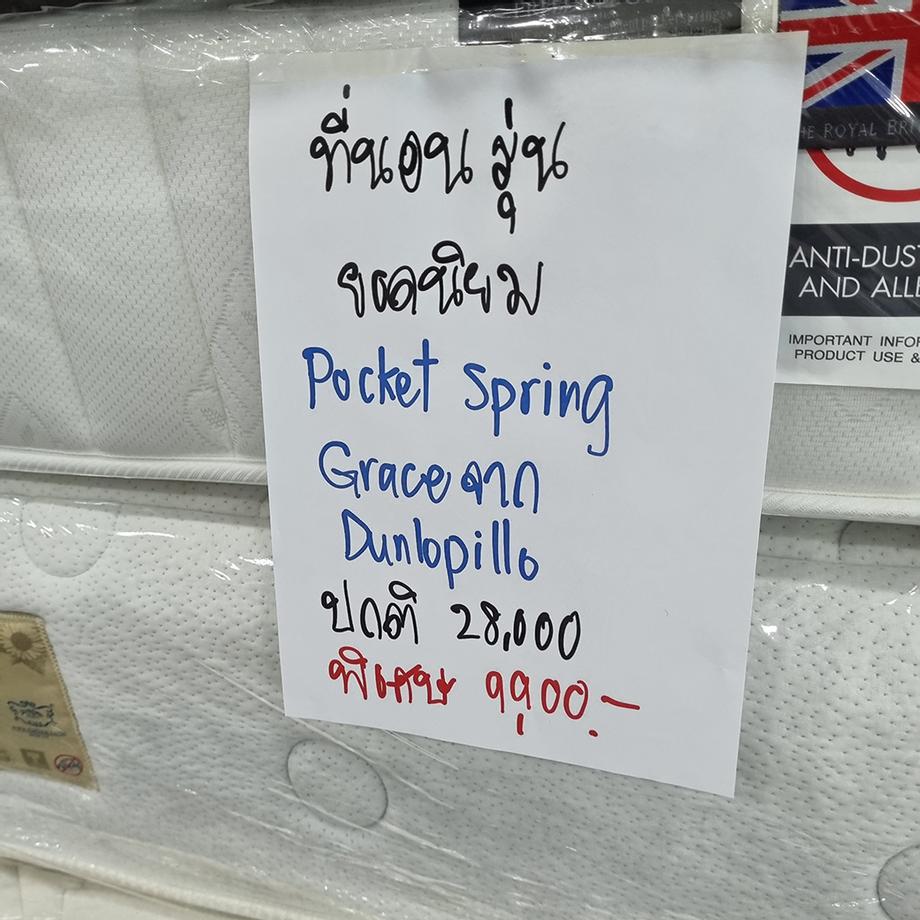 ที่นอน รุ่น
ยอดนิยม
Pocket spring
Grace จาก
Dunlopillo
ปกติ 28,000
พิเศษ 9,900.-
THE ROYAL BRI
ANTI-DUS
AND ALLE
IMPORTANT INFOR
PRODUCT USE &